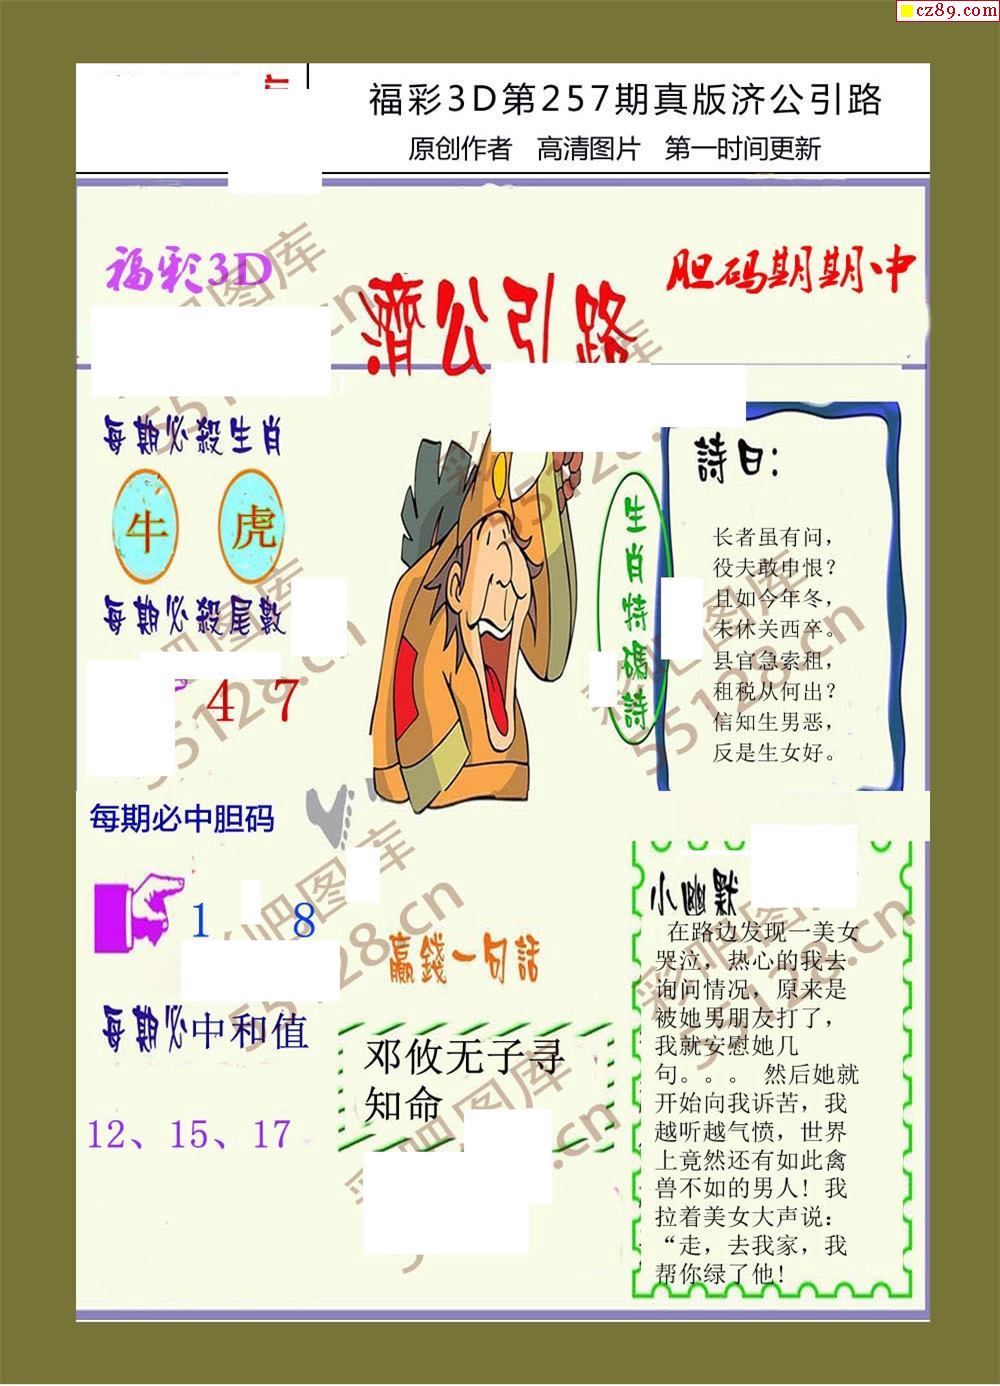 cz89.com
福彩3D第257期真版济公引路
原创作者 高清图片 第一时间更新
福彩3D
濟公引路
胆码期期中
每期必殺生肖
牛 虎
每期必殺尾數
4 7
每期必中胆码
1 8
每期必中和值
12、15、17
生肖特碼詩
詩曰:
长者虽有问，
役夫敢申恨？
且如今年冬，
未休关西卒。
县官急索租，
租税从何出？
信知生男恶，
反是生女好。
贏錢一句話
邓攸无子寻
知命
小幽默
在路边发现一美女
哭泣，热心的我去
询问情况，原来是
被她男朋友打了，
我就安慰她几
句。。。 然后她就
开始向我诉苦，我
越听越气愤，世界
上竟然还有如此禽
兽不如的男人！我
拉着美女大声说：
“走，去我家，我
帮你绿了他!
彩吧图库
55128.cn